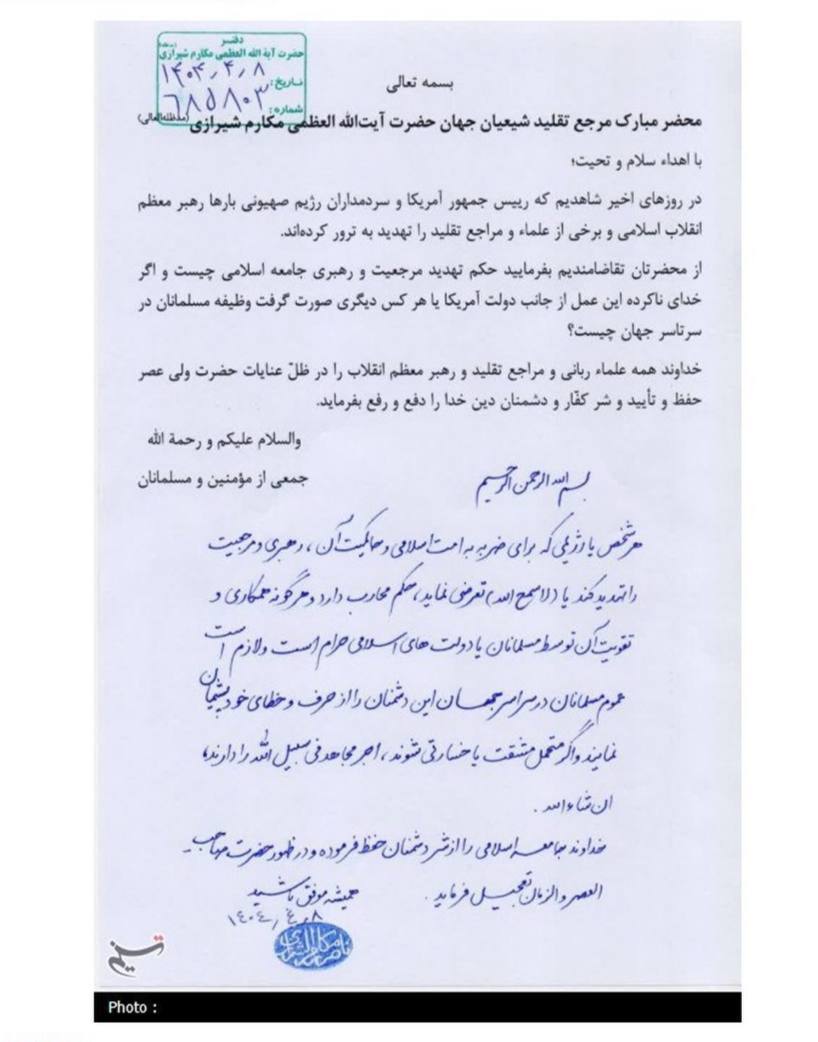 دفتر
حضرت آیة الله العظمی مکارم شیرازی
تاریخ: ۱۴۰۴/۴/۸
شماره: ۶۸۵۸۰۳
بسمه تعالی
محضر مبارک مرجع تقلید شیعیان جهان حضرت آیت‌الله العظمی مکارم شیرازی (مدظله‌العالی)
با اهداء سلام و تحیت؛
در روزهای اخیر شاهدیم که رییس جمهور آمریکا و سردمداران رژیم صهیونی بارها رهبر معظم
انقلاب اسلامی و برخی از علماء و مراجع تقلید را تهدید به ترور کرده‌اند.
از محضرتان تقاضامندیم بفرمایید حکم تهدید مرجعیت و رهبری جامعه اسلامی چیست و اگر
خدای ناکرده این عمل از جانب دولت آمریکا یا هر کس دیگری صورت گرفت وظیفه مسلمانان در
سرتاسر جهان چیست؟
خداوند همه علماء ربانی و مراجع تقلید و رهبر معظم انقلاب را در ظلّ عنایات حضرت ولی عصر
حفظ و تأیید و شر کفّار و دشمنان دین خدا را دفع و رفع بفرماید.
والسلام علیکم و رحمة الله
جمعی از مؤمنین و مسلمانان
بسم الله الرحمن الرحیم
هر شخص یا رژیمی که برای ضربه به امت اسلامی و حاکمیت آن، رهبری و مرجعیت
را تهدید کند یا (لا سمح الله) تعرضی نماید، حکم محارب دارد و هرگونه همکاری و
تقویت آن توسط مسلمانان یا دولت های اسلامی حرام است و لازم است
عموم مسلمانان در سراسر جهان این دشمنان را از حرف و خطای خود پشیمان
نمایند و اگر متحمل مشقت یا خسارتی شوند، اجر مجاهد فی سبیل الله را دارند،
ان شاء الله.
خداوند جامعه اسلامی را از شر دشمنان حفظ فرموده و در ظهور حضرت صاحب
العصر و الزمان تعجیل فرماید.
همیشه موفق باشید
۱۴۰۴/۴/۸
ناصر مکارم الشیرازی
تسنیم
Photo :